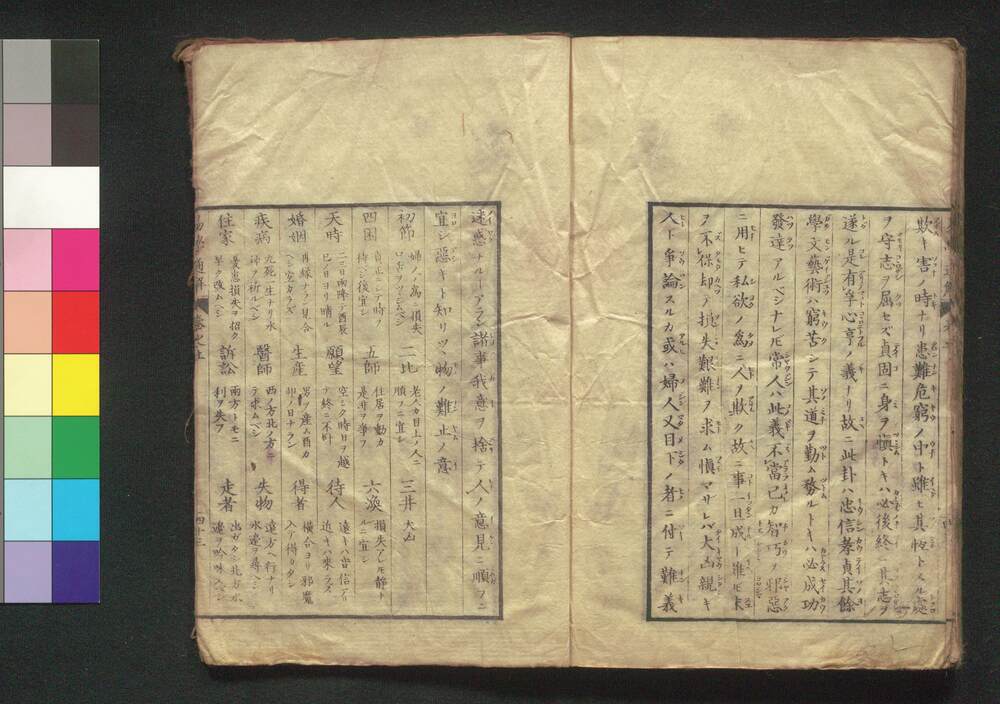 欺キ害ノ時ナリ患難危窮ノ中ト雖ヒ其恢トスル處
ヲ守志ヲ屈セズ貞固ニ身ヲ愼トキハ必後終ニ其志ヲ
遂ル是有孚心亨ノ義ナリ故ニ此卦ハ忠信孝貞其餘
學文藝術ハ窮苦シテ其道ヲ勤ム務ルトキハ必成功
發達アルベシナレ𪜈常人ハ此義不當己カ智巧ヲ邪惡
ニ用ヒテ私欲ノ爲ニ人ヲ欺ク故ニ事一旦成ト雖𪜈末
ヲ不保却テ損失艱難ヲ求ム愼マザレバ大凶親キ
人ト爭論スルカ或ハ婦人又目下ノ者ニ付テ難義
迷惑ナルアラン諸事我意ヲ捨テ人ノ意見ニ順フニ
宜シ惡キト知リツヽ物ノ難止ノ意
初節 婦ノ爲ニ損失 口舌ヲツヽシムベシ 二比 老人カ目上ノ人ニ 順フニ宜シ 三井 大凶
四困 貞正ニシテ時ヲ 待ベシ後宜シ 五師 住居ヲ動カ 是非ヲ爭フ 六渙 損失アレ𪜈靜ナ ルニ宜シ
天時 二三日雨降テ酉辰 巳ノ日ヨリ晴ル 願望 空シク時日ヲ越 テ終ニ不叶 待人 遠キハ音信アリ 近キハ來ラズ
婚姻 再縁ナラン見合 ベシ宜カラズ 生産 男ノ産ム酉カ 卯ノ日ナラン 得者 橫合ヨリ邪魔 入テ得カタシ
疾病 九死一生ナリ水 神ヲ祈ルベシ 醫師 西ノ方北ノ方ニ テ求ムベシ 失物 遠方ヘ行ナリ 水邊ヲ尋ベシ
住家 損失ヲ招ク 早ク改ムベシ 訴訟 兩方トモニ 利ヲ失フ 走者 出ガタシ北方水 邊ヲ吟味スベシ
通解 卷之上 四十三